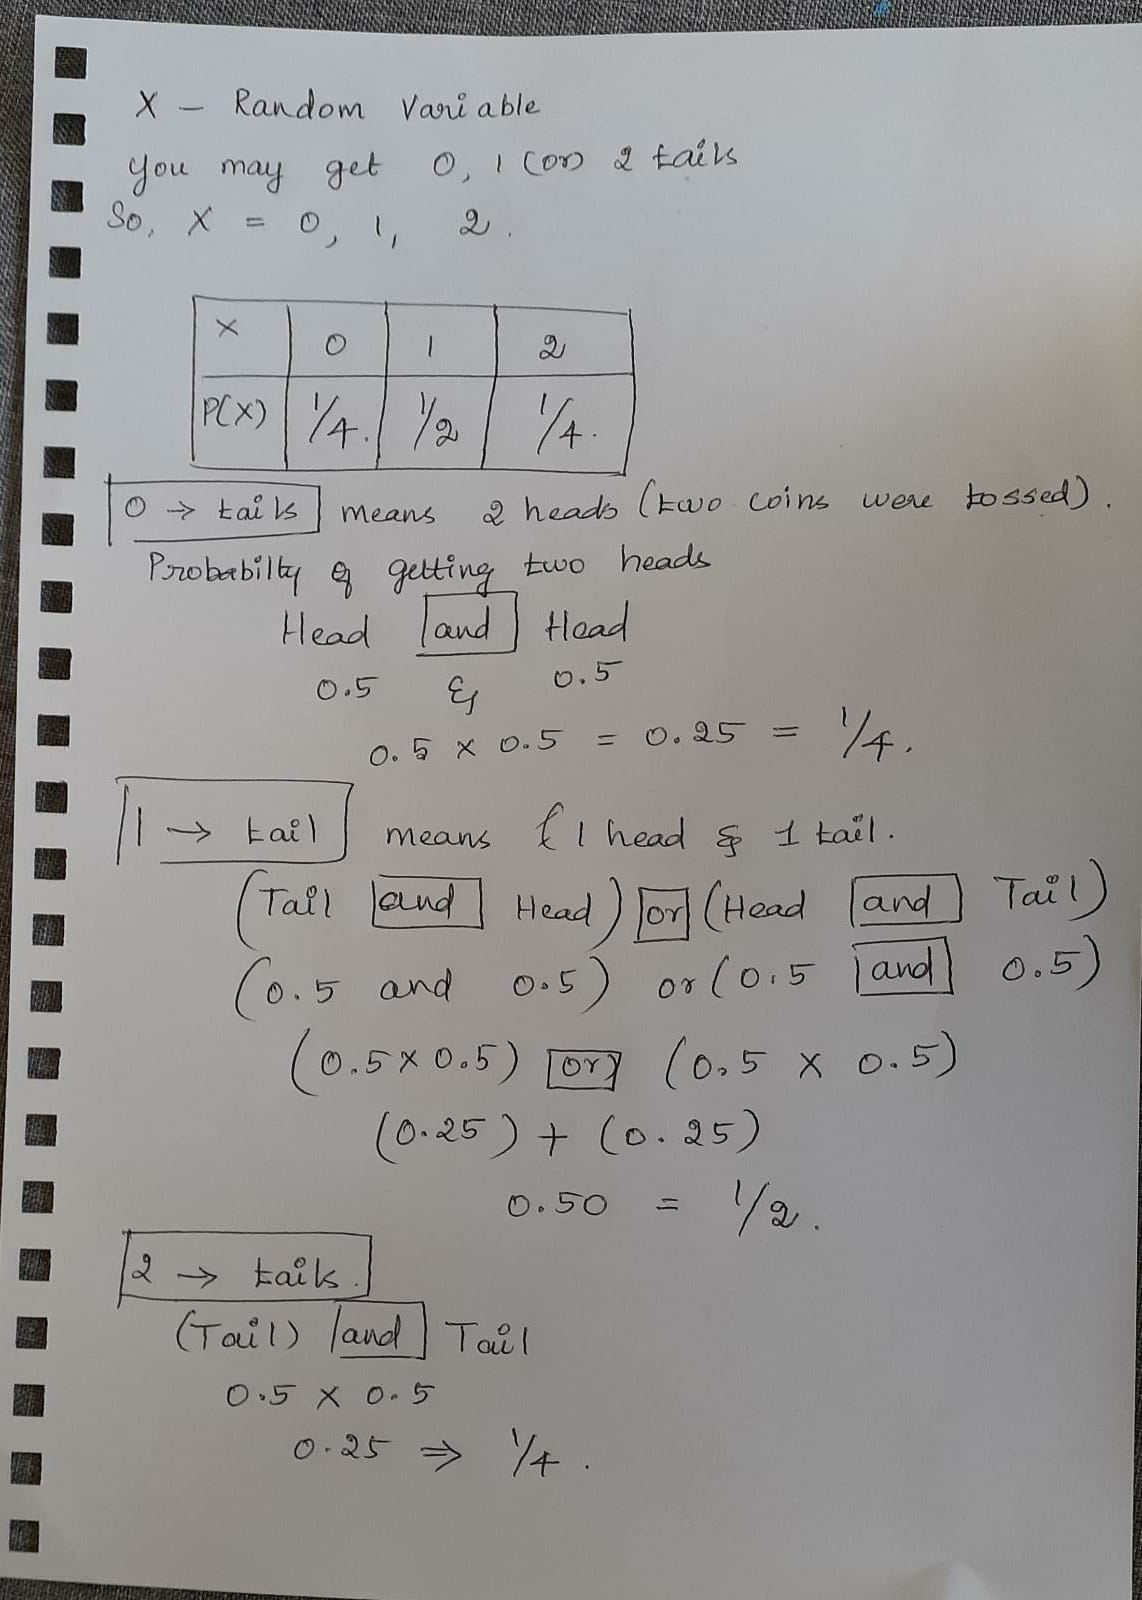 X - Random Variable
You may get 0, 1 (or) 2 tails
So, X = 0, 1, 2.
X 0 1 2
P(X) 1/4. 1/2 1/4.
0 → tails means 2 heads (two coins were tossed).
Probabilty of getting two heads
Head and Head
0.5 & 0.5
0.5 x 0.5 = 0.25 = 1/4.
1 → tail means 1 head & 1 tail.
(Tail and Head) or (Head and Tail)
(0.5 and 0.5) or (0.5 and 0.5)
(0.5 x 0.5) or (0.5 x 0.5)
(0.25) + (0.25)
0.50 = 1/2.
2 → tails.
(Tail) and Tail
0.5 x 0.5
0.25 ⇒ 1/4.